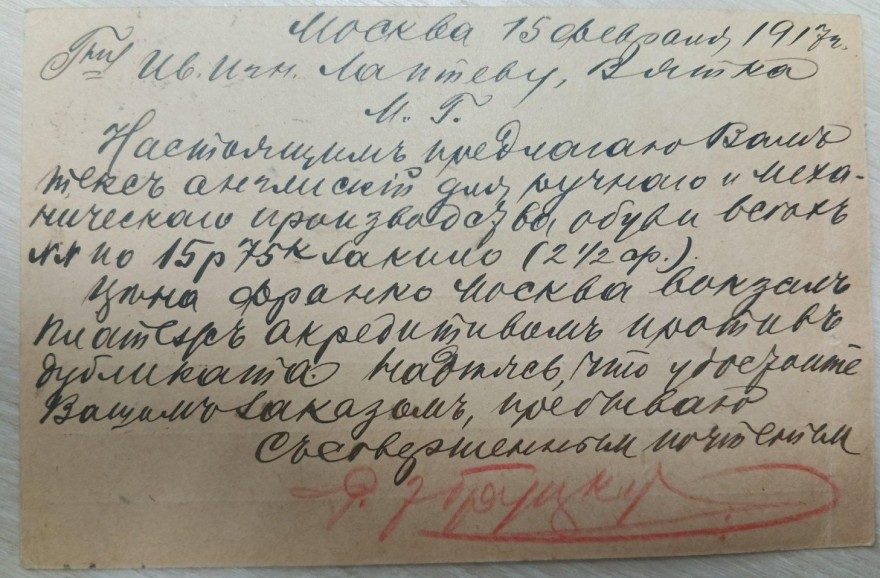 Москва 15 февраля 1917г.
Гну Ив. Ичн. Лаптеву, Вятка
М. Г.
Настоящимъ предлагаю Вамъ
тексъ английскій для ручнаго и меха-
ническаго производства обуви всѣхъ
№№ по 15р 75к за кило (2 1/2 ф.).
Цѣна франко Москва вокзалъ
Платежъ акредитивомъ противъ
дубликата. Надѣясь, что удостоите
Вашимъ заказомъ, пребываю
Съ совершеннымъ почтеніемъ